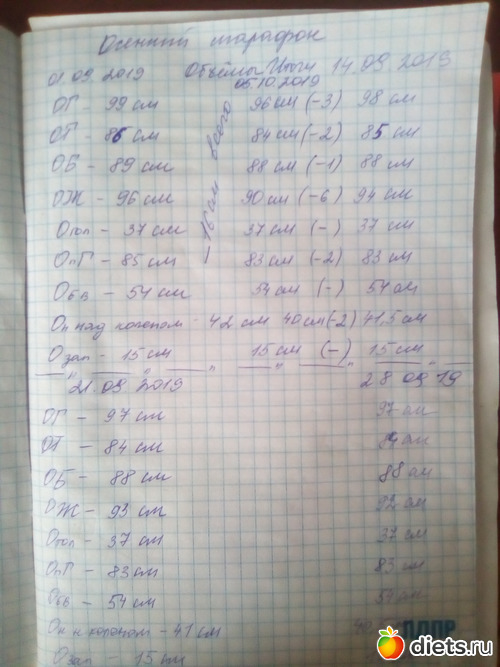 Осенний марафон
01 09 2019 Объёмы Итоги 14.09 2019
05.10.2019
ОГ - 99 см 96 см (-3) 98 см
ОТ - 86 см 84 см (-2) 85 см
ОБ - 89 см 88 см (-1) 88 см
ОЖ - 96 см 90 см (-6) 94 см
Огол - 37 см 37 см (-) 37 см
ОпГ - 85 см 83 см (-2) 83 см
Обв - 54 см 54 см (-) 54 см
Оп над коленом - 42 см 40 см (-2) 41,5 см
Озап - 15 см 15 см (-) 15 см
- 16 см всего
21.09 2019 28 09 19
ОГ - 97 см 97 см
ОТ - 84 см 84 см
ОБ - 88 см 88 см
ОЖ - 93 см 92 см
Огол - 37 см 37 см
ОпГ - 83 см 83 см
Обв - 54 см 54 см
Он н коленом - 41 см
Озап - 15 см
ЛДПР
diets.ru